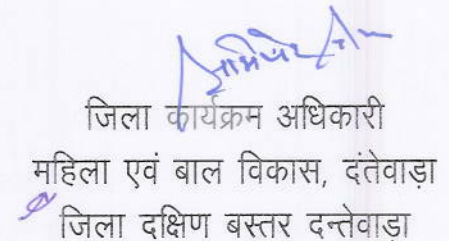 जिला कार्यक्रम अधिकारी
महिला एवं बाल विकास, दंतेवाड़ा
जिला दक्षिण बस्तर दन्तेवाडा